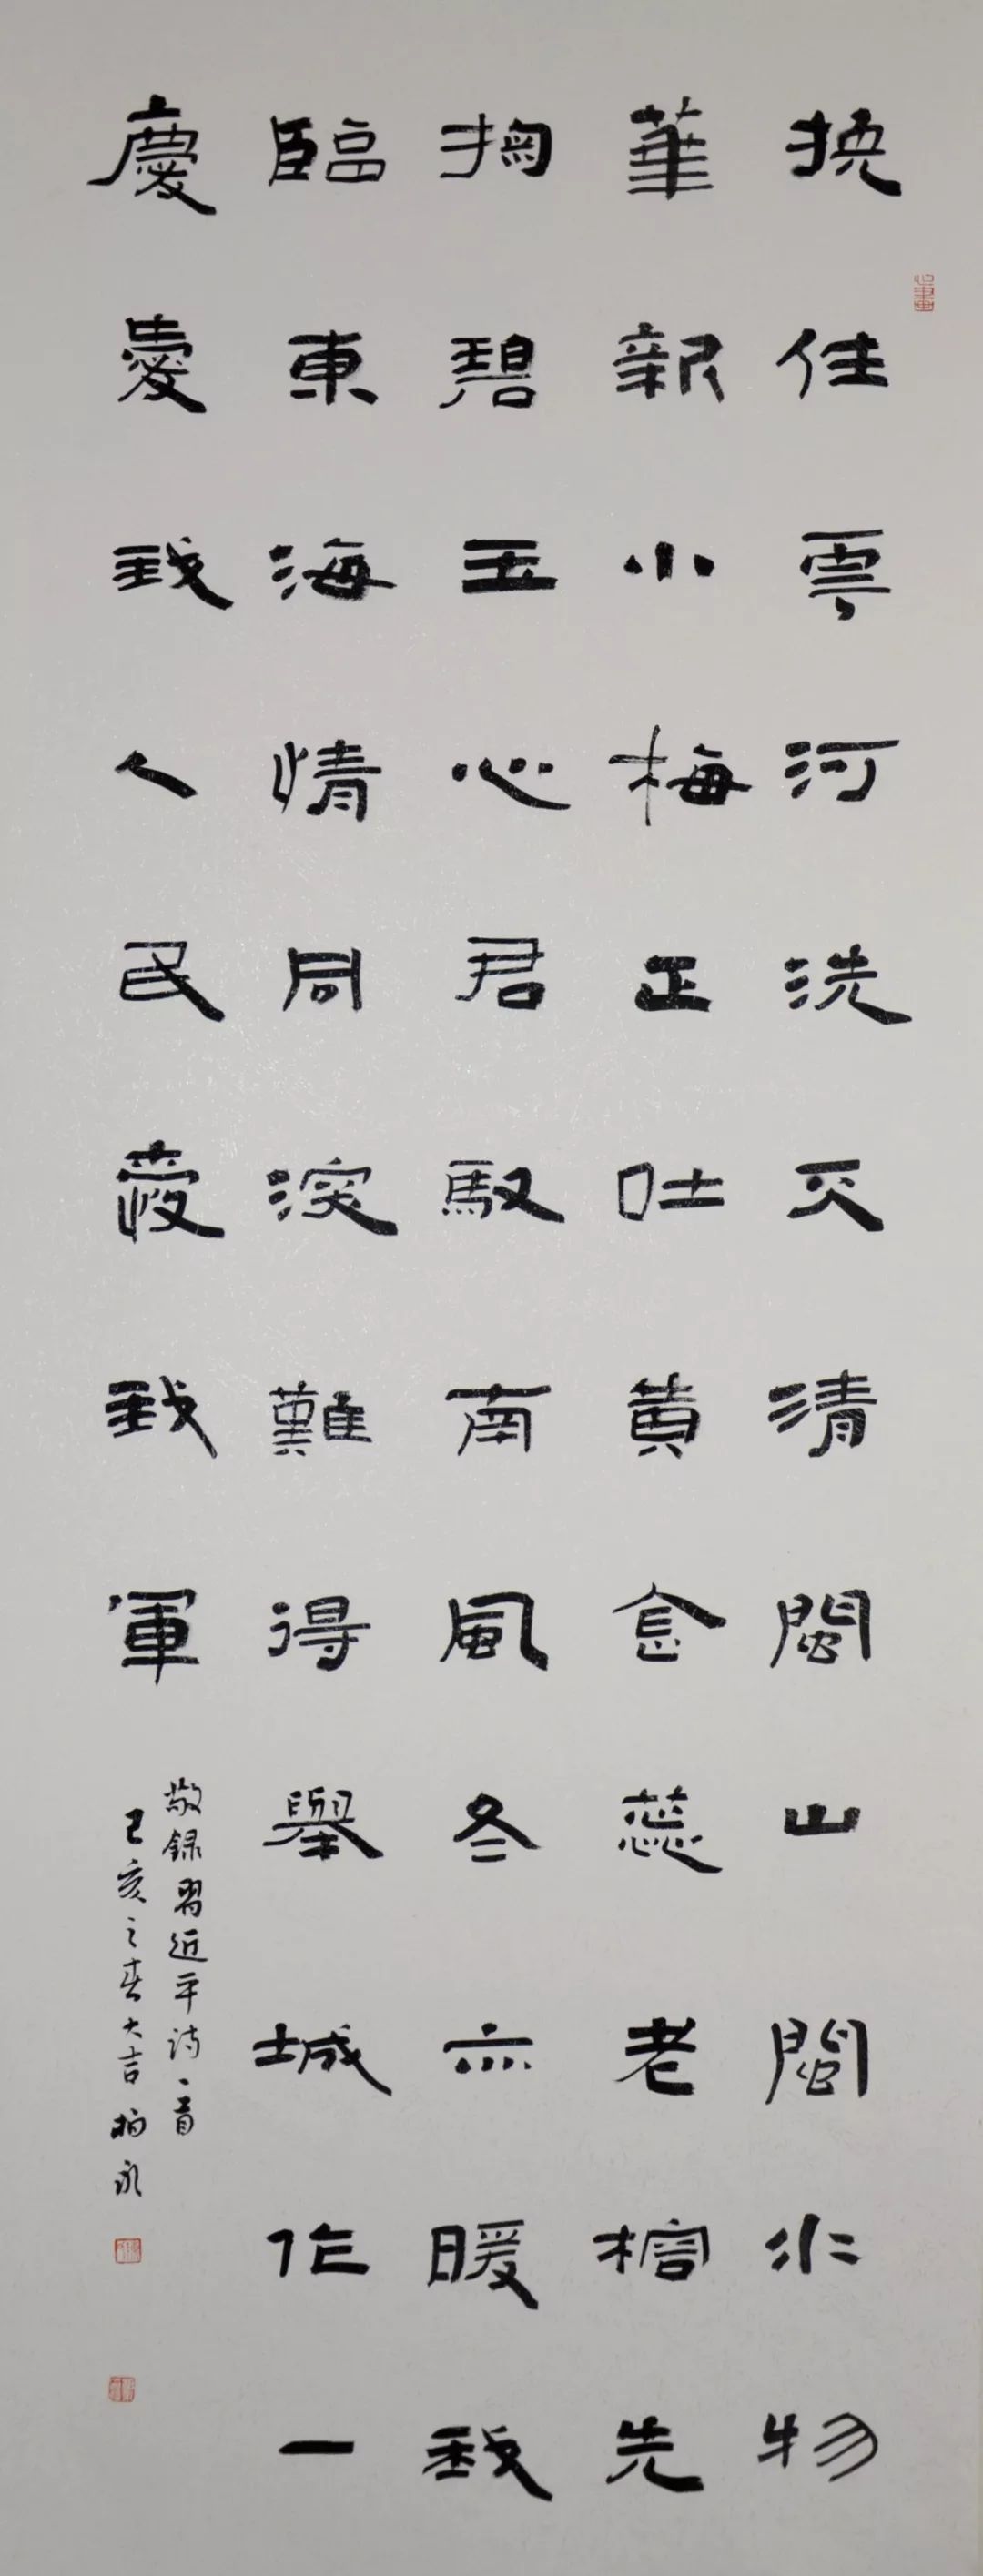 挽住雲河洗天清閩山閩水物
華新小梅正吐黃含蕊老榕先
掬碧玉心君馭南風冬亦暖我
臨東海情同深難得舉城作一
慶愛我人民愛我軍
敬録習近平詩一首
己亥之春大吉